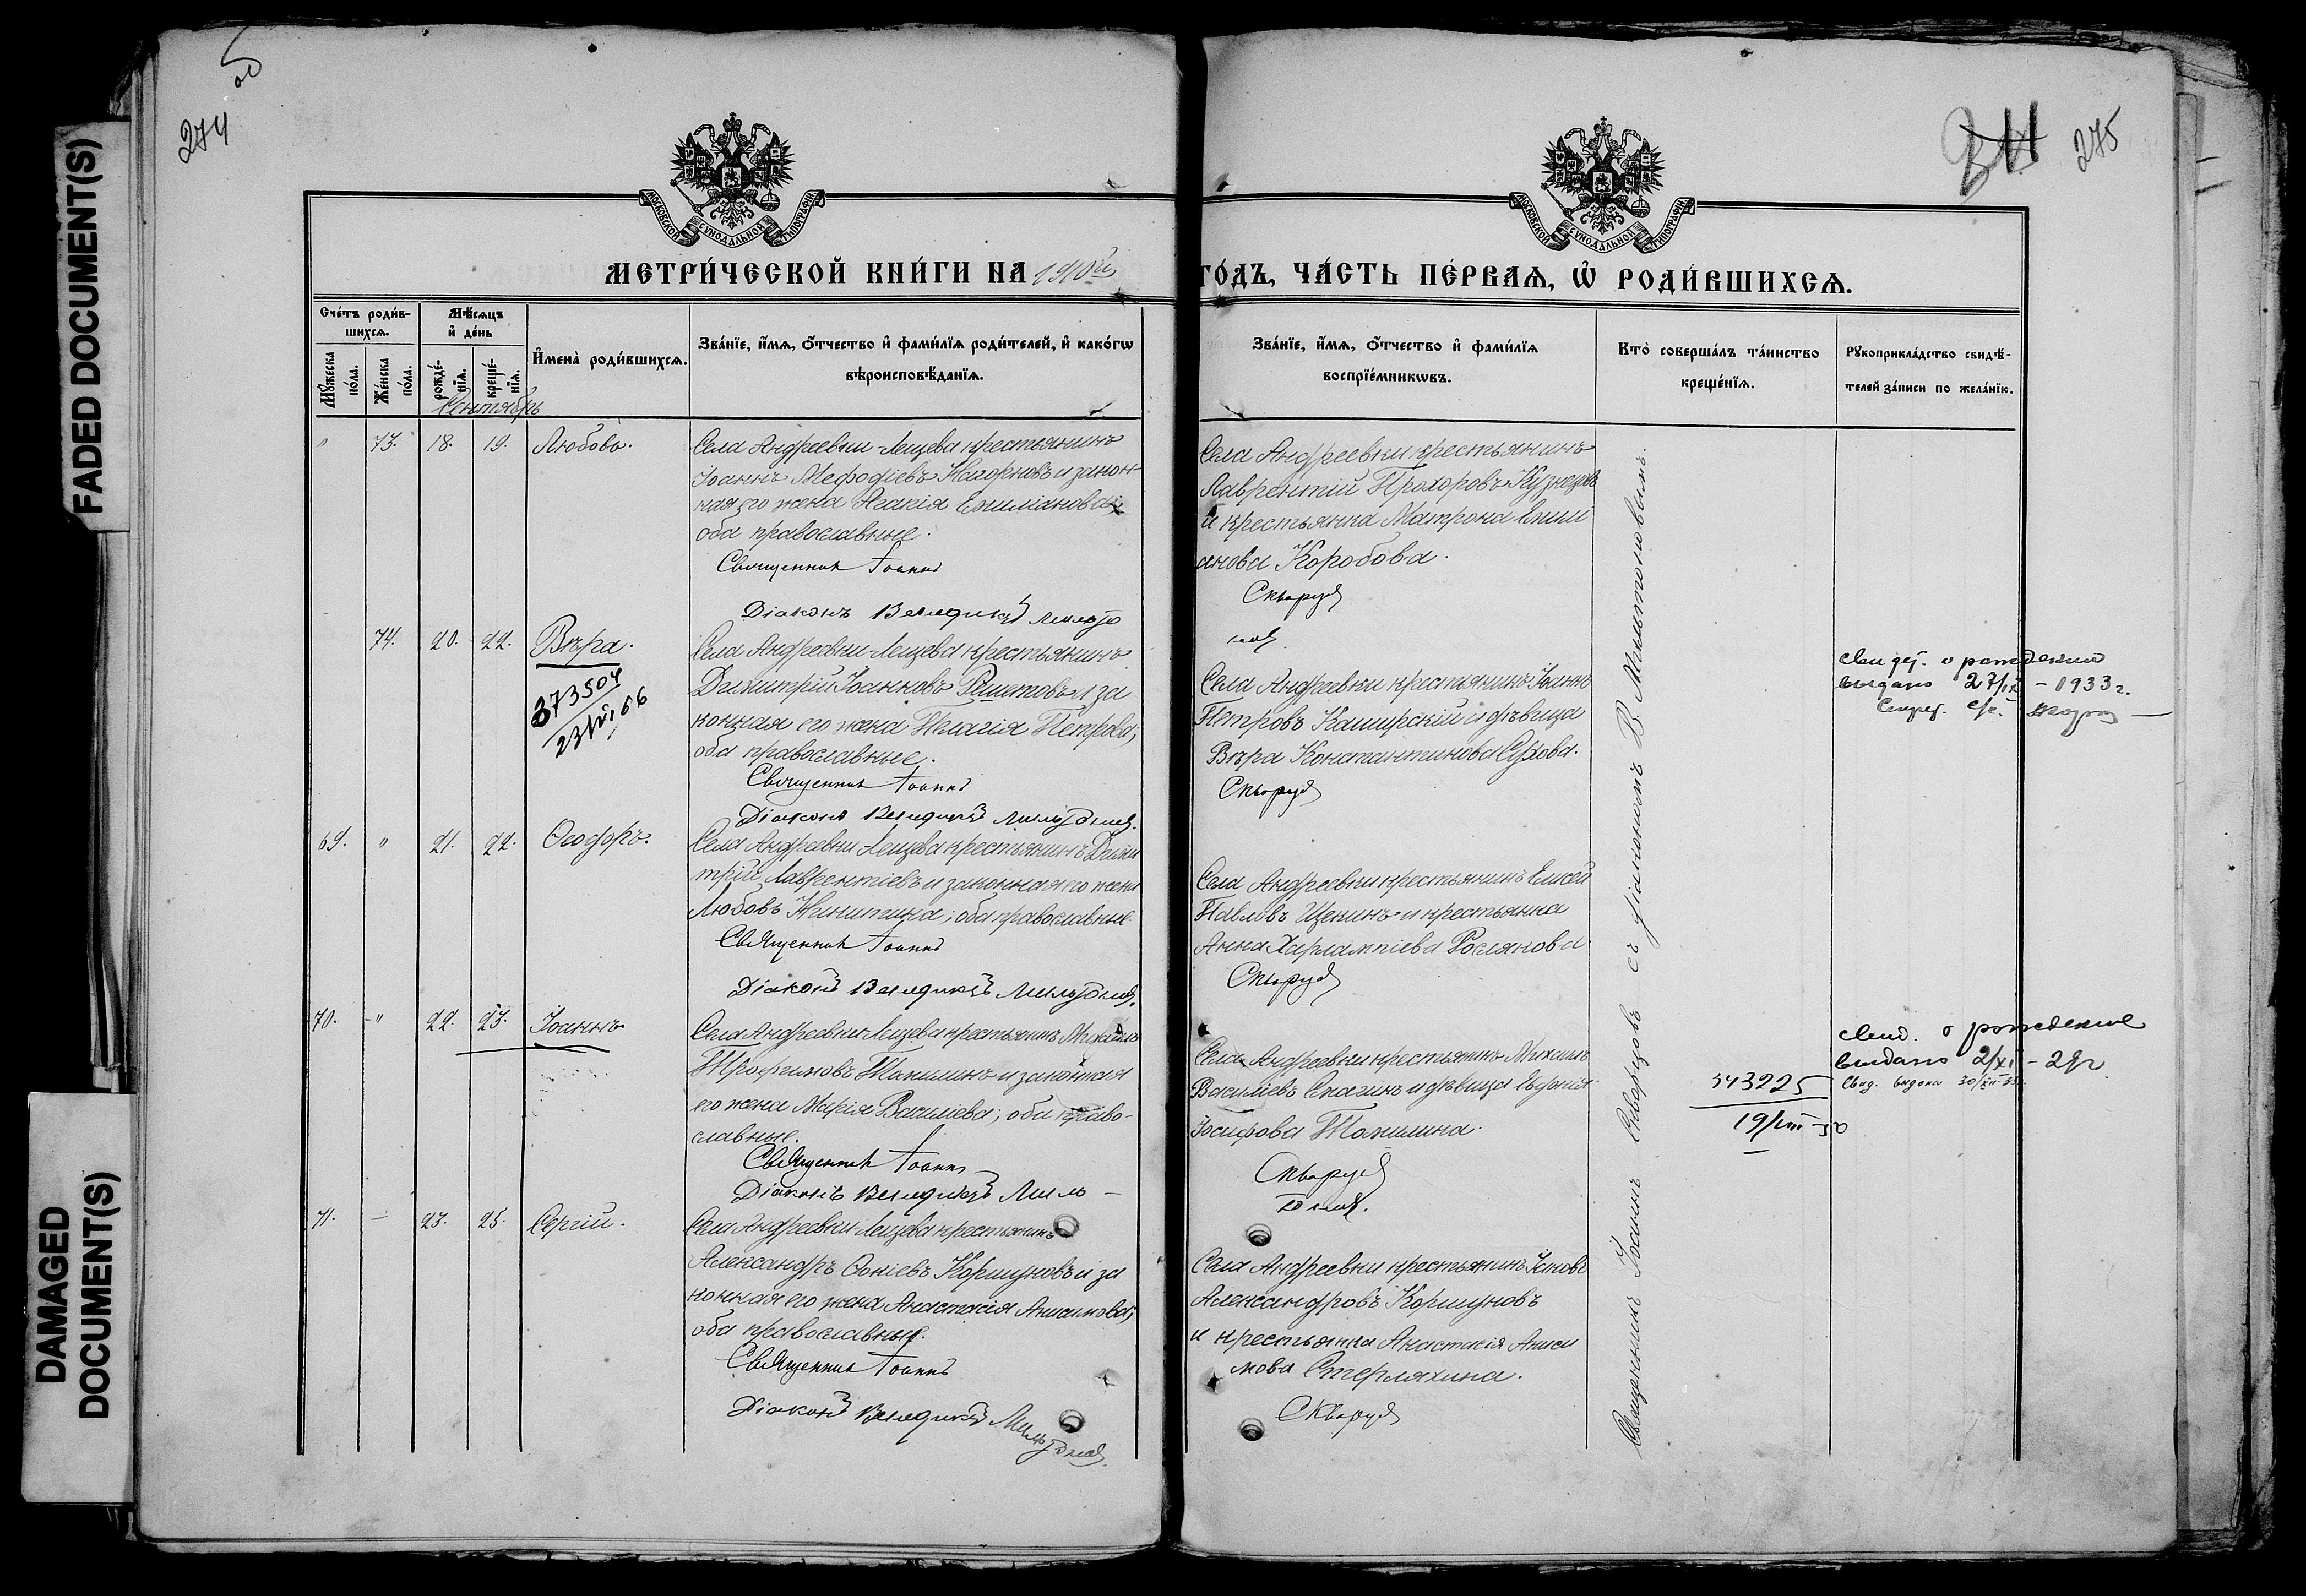 FADED DOCUMENT(S)
DAMAGED
DOCUMENT(S)
274
275
МОСКОВСКОЙ СУНОДАЛЬНОЙ ТИПОГРАФІИ
МОСКОВСКОЙ СУНОДАЛЬНОЙ ТИПОГРАФІИ
МЕТРИ́ЧЕСКОЙ КНИ́ГИ НА 1910й
ГО́ДЪ, ЧА́СТЬ ПЕ́РВАѦ, Ѡ҆ РОДИ́ВШИХСѦ.
Сче́тъ роди́в-
шихсѧ.
Мꙋ́жеска по́ла.
Же́нска по́ла.
Мѣ́сѧцъ
и҆ де́нь
рожде́-
нїѧ.
креще́-
нїѧ.
И҆мена̀ роди́вшихсѧ.
Зва́нїе, и҆́мѧ, ѻ҆́тчество и҆ фами́лїѧ роди́телей, и҆ како́гѡ
вѣроисповѣ́данїѧ.
Зва́нїе, и҆́мѧ, ѻ҆́тчество и҆ фами́лїѧ
воспрїе́мникѡвъ.
Кто̀ соверша́лъ та́инство
креще́нїѧ.
Рꙋкоприкла́дство свидѣ́-
телей за́писи по жела́нїю.
Сентябрь
" 73. 18. 19. Любовь.
Села Андреевки-Лещева крестьянинъ
Іоаннъ Мефодіевъ Нагорновъ и закон-
ная его жена Агапія Емиліанова
оба православные.
Священник Іоанн
Діаконъ Венедикт
Села Андреевки крестьянинъ
Лаврентій Прохоровъ Кузнецовъ
и крестьянка Матрона Емили
анова Коробова.
Скворцов
74. 20. 22. Вѣра.
373504
23/VI 66
Села Андреевки-Лещева крестьянинъ
Димитрій Іоанновъ Решетовъ и за
конная его жена Пелагія Петрова,
оба православные.
Священник Іоанн
Діаконъ Венедикт
Села Андреевки крестьянинъ Іоаннъ
Петровъ Каширскій и дѣвица
Вѣра Константинова Сухова.
Скворцов
Свидет. о рождении
выдано 27/IX - 1933 г.
69. " 21. 22. Ѳеодоръ.
Села Андреевки Лещева крестьянинъ Дими
трій Лаврентіевъ и законная его жена
Любовь Никитина; оба православные
Священник Іоанн
Діаконъ Венедиктъ
Села Андреевки крестьянинъ Елисей
Павловъ Щекинъ и крестьянка
Анна Харлампіева Рослякова
Скворцов
70. " 22. 23. Іоаннъ
Села Андреевки-Лещева крестьянинъ Михаилъ
Трофимовъ Топилинъ и законная
его жена Марія Василіева; оба право-
славные.
Священник Іоанн
Діаконъ Венедиктъ
Села Андреевки крестьянинъ Михаилъ
Василіевъ Скагинъ и дѣвица Евфимія
Іосифова Топилина.
Скворцов
543225
19/VIII-50
Свид. о рождение
выдано 2/XI - 28 г
Свид. выдана 30/XII-35
71. — 23. 25. Сергій.
Села Андреевки Лещева крестьянинъ
Александръ Ѳокіевъ Коршуновъ и за
конная его жена Анастасія Анисимова;
оба православные.
Священник Іоаннъ
Діаконъ Венедикт
Села Андреевки крестьянинъ Іаковъ
Александровъ Коршуновъ
и крестьянка Анастасія Аниси
мова Стерляхина.
Скворцов
Священникъ Іоаннъ Скворцовъ съ діакономъ В.